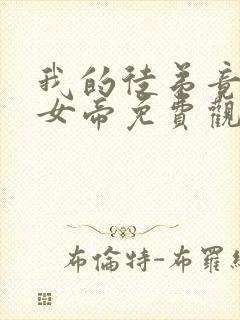 我的徒弟竟
女帝免費觀
布倫特-布羅